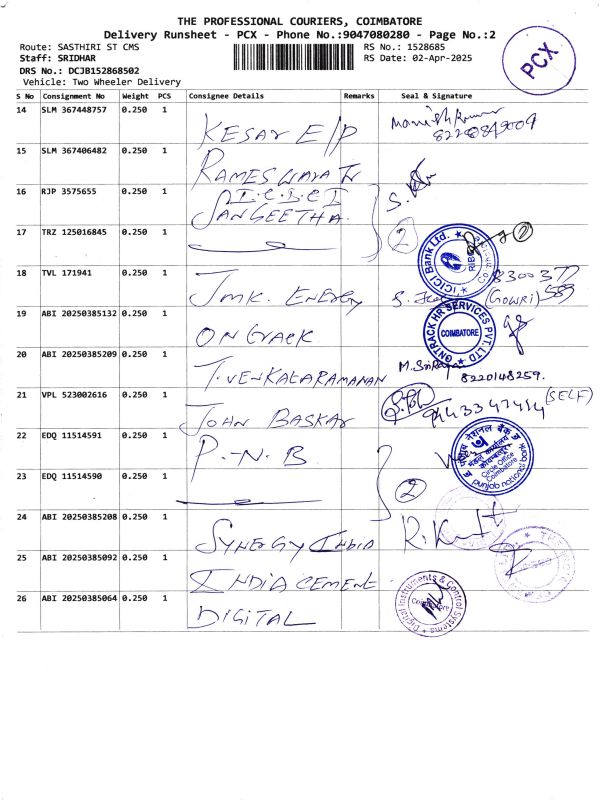 THE PROFESSIONAL COURIERS, COIMBATORE
Delivery Runsheet - PCX - Phone No.:9047080280 - Page No.:2
Route: SASTHIRI ST CMS
RS No.: 1528685
Staff: SRIDHAR
RS Date: 02-Apr-2025
DRS No.: DCJB152868502
Vehicle: Two Wheeler Delivery
PCX
S No Consignment No Weight PCS Consignee Details Remarks Seal & Signature
14 SLM 367448757 0.250 1 KESAR E/P
15 SLM 367406482 0.250 1 RAMESWARA
16 RJP 3575655 0.250 1 SANGEETHA. 2
17 TRZ 125016845 0.250 1
ICICI Bank Ltd.
18 TVL 171941 0.250 1 JMK. ENERGY (GOWRI)
19 ABI 20250385132 0.250 1 ONTRACK
ONTRACK HR SERVICES PVT. LTD COIMBATORE
20 ABI 20250385209 0.250 1 T. VENKATARAMANAN 8220148259.
21 VPL 523002616 0.250 1 JOHN BASKAR (SELF)
22 EDQ 11514591 0.250 1 P.N.B
पंजाब नैशनल बैंक मंडल कार्यालय Circle Office Coimbatore punjab national bank
23 EDQ 11514590 0.250 1 2
24 ABI 20250385208 0.250 1 SYNERGY INDIA
25 ABI 20250385092 0.250 1 INDIA CEMENT
26 ABI 20250385064 0.250 1 DIGITAL
Digital Instruments & Control Systems Coimbatore